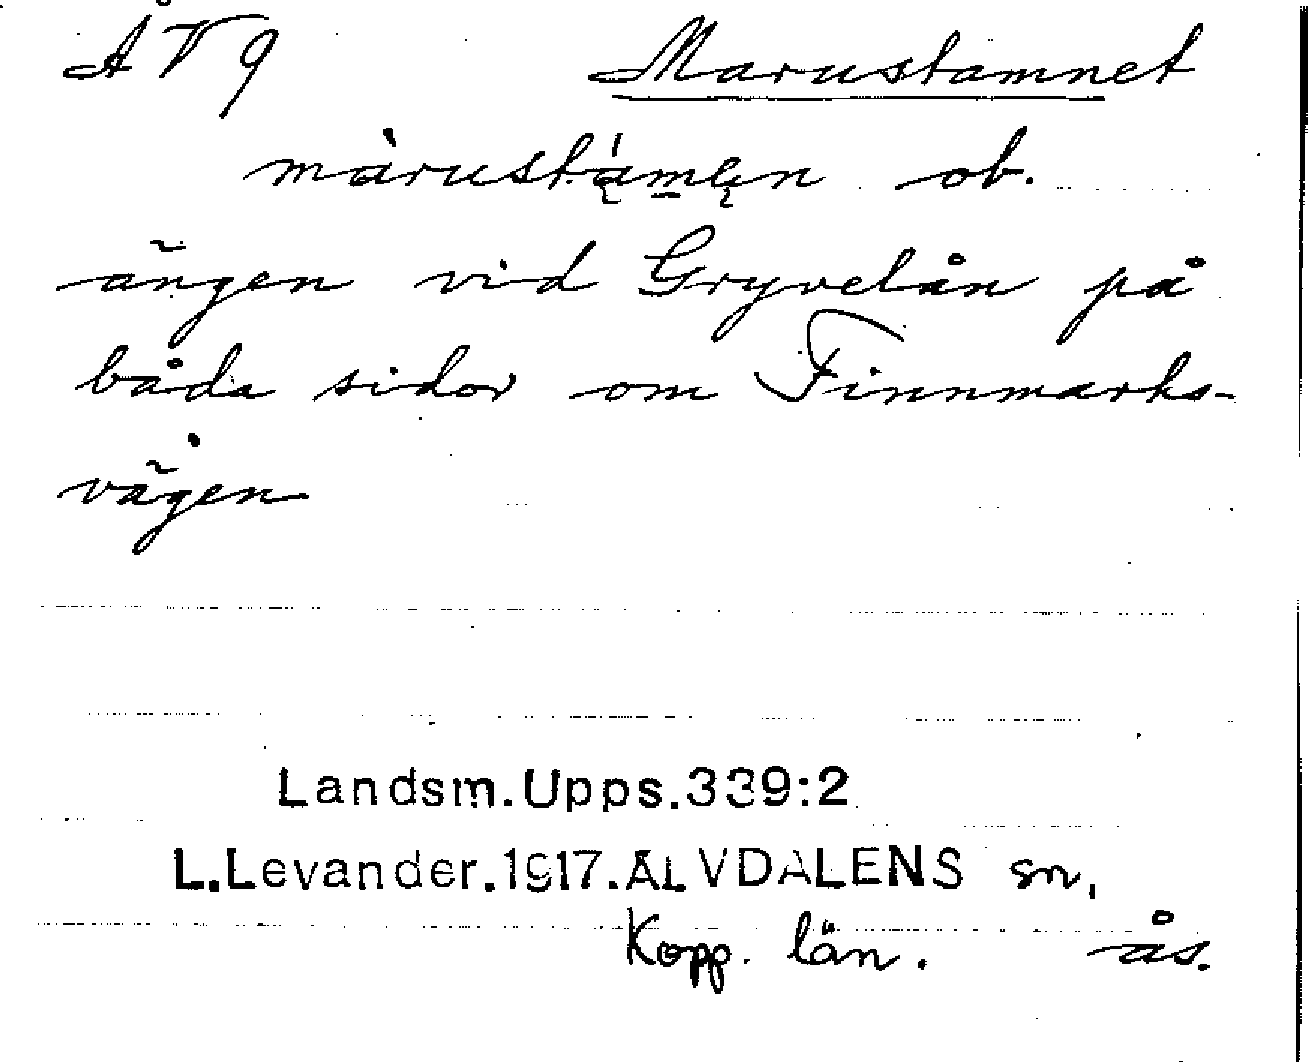 ÅV9 Marustamnet
màrustämen ob.
ängen vid Gryvelån på
båda sidor om Finnmarks-
vägen
Landsm.Upps.339:2
L.Levander.1917.ÄLVDALENS sn,
Kopp. län. ås.